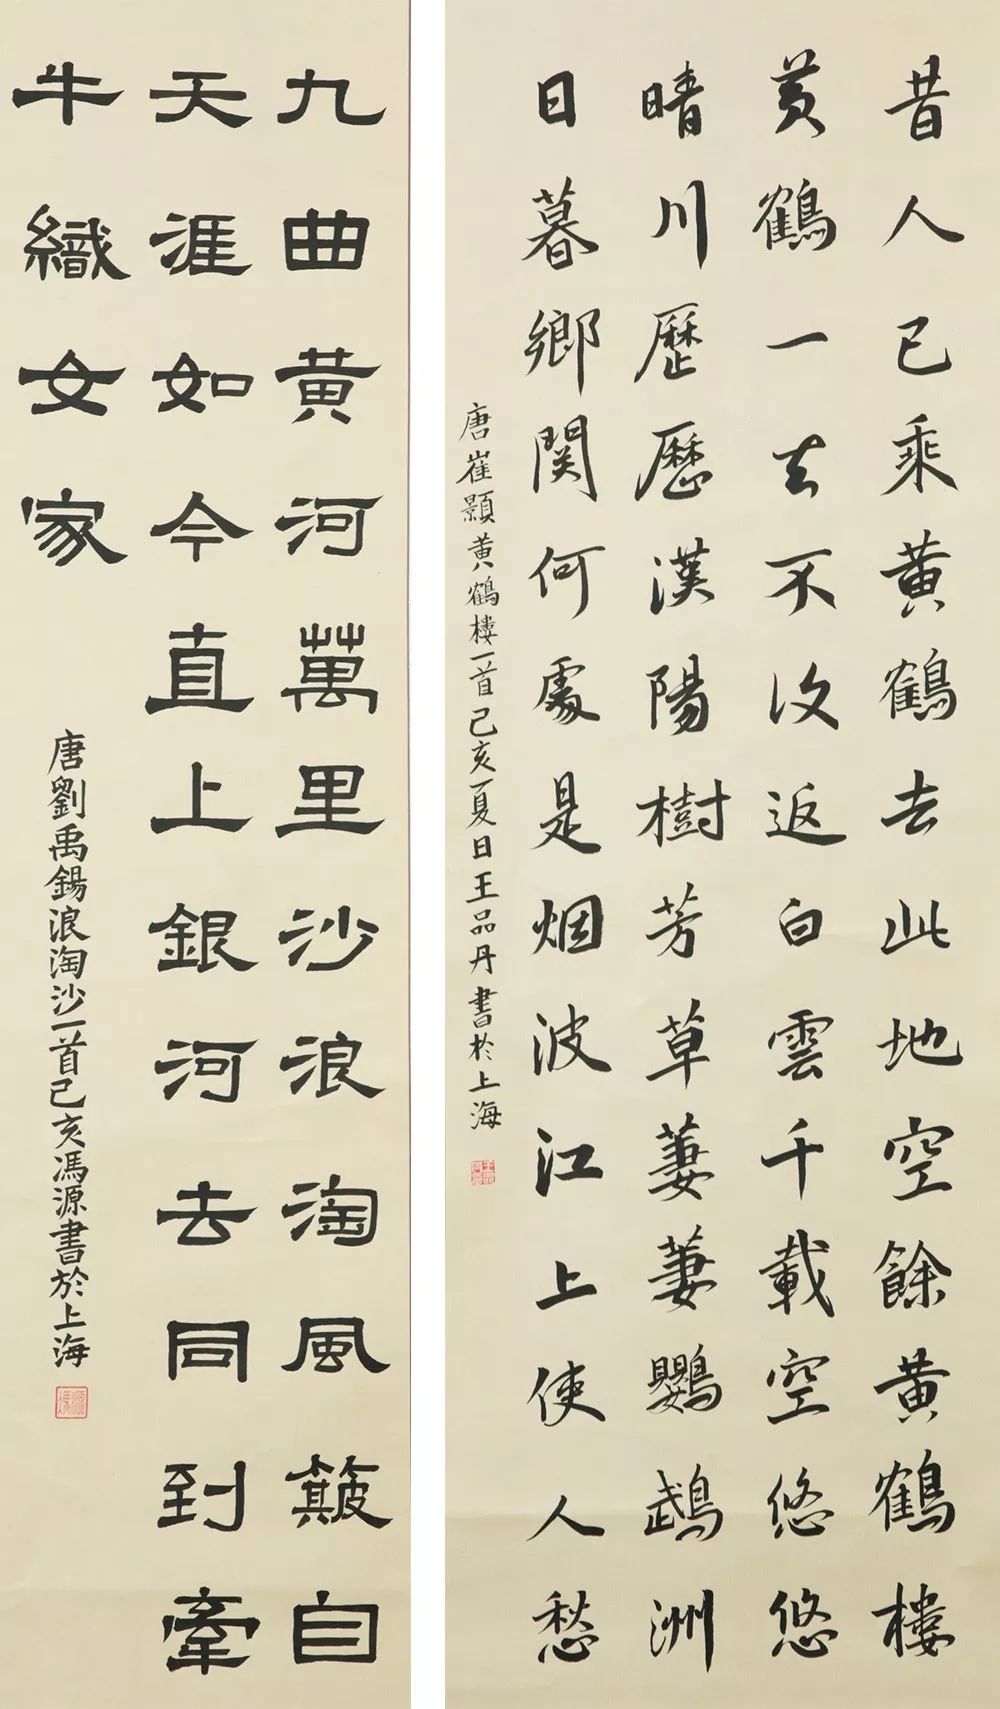 昔人已乘黄鶴去此地空餘黄鶴樓
黄鶴一去不復返白雲千載空悠悠
晴川歷歷漢陽樹芳草萋萋鸚鵡洲
日暮鄉関何處是烟波江上使人愁
唐崔顥黄鶴樓一首己亥夏日王品丹書於上海
九曲黄河萬里沙浪淘風簸自
天涯如今直上銀河去同到牽
牛織女家
唐劉禹錫浪淘沙一首己亥馮源書於上海